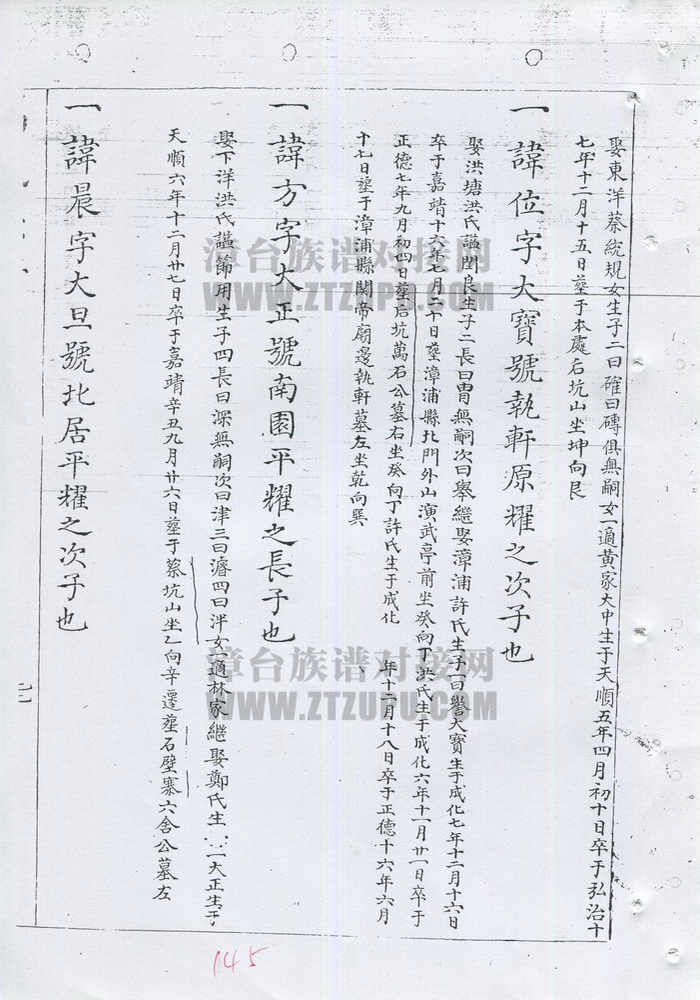 娶東洋蔡統規女生子二曰確曰磚俱無嗣女一適黃家大中生于天順五年四月初十日卒于弘治十
七年十二月十五日塟于本處后坑山坐坤向艮
一諱位字大寶號執軒原耀之次子也
娶洪塘洪氏諡閨良生子二長曰胄無嗣次曰舉繼娶漳浦許氏生子一曰譽大寶生于成化七年十二月十六日
卒于嘉靖十六年七月二十日塟漳浦縣北門外山演武亭前坐癸向丁洪氏生于成化六年十一月廿一日卒于
正德七年九月初四日塟后坑萬石公墓右坐癸向丁許氏生于成化 年十二月十八日卒于正德十六年六月
十七日塟于漳浦縣關帝廟邊執軒墓左坐乾向巽
一諱方字大正號南園平耀之長子也
娶下洋洪氏諡節用生子四長曰深無嗣次曰津三曰濬四曰泮女一適林家繼娶鄭氏生 一大正生于
天順六年十二月廿七日卒于嘉靖辛丑九月廿六日塟于蔡坑山坐乙向辛遷塟石壁寨六舍公墓左
一諱晨字大旦號北居平耀之次子也
145
漳台族谱对接网
WWW.ZTZUPU.COM
漳台族谱对接网
WWW.ZTZUPU.COM